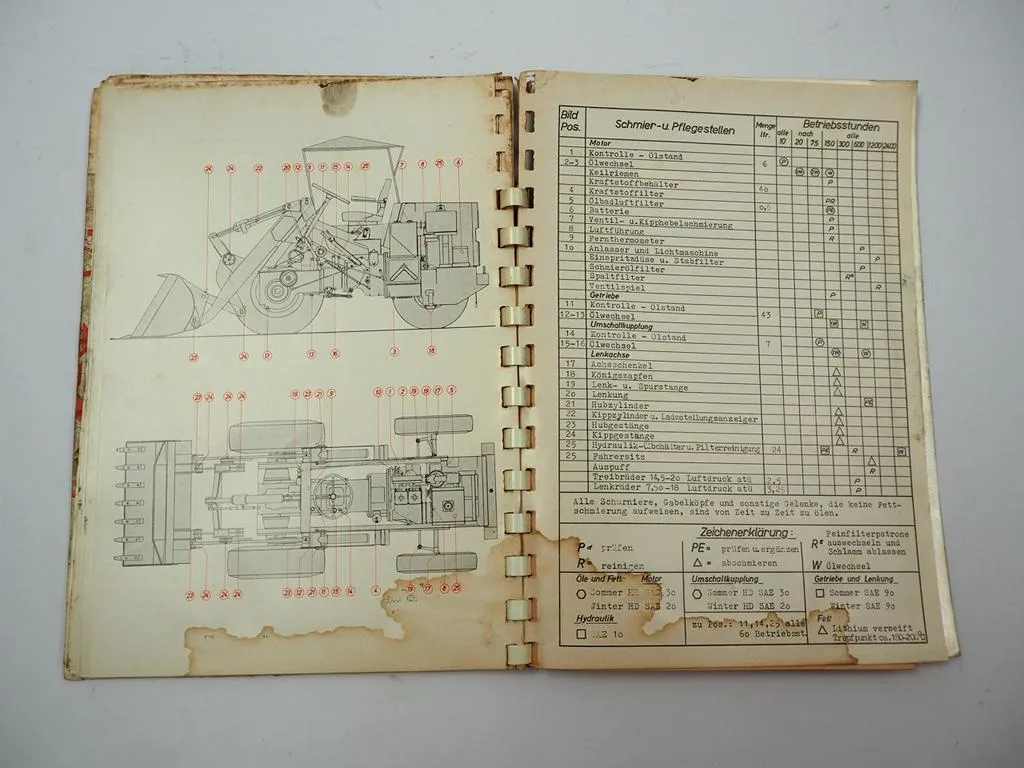 24 24 22 20 12 9 11 15 14 25 7 8 25 6
23 24 17 13 16 3 18
23 24 24 24 19 23 21 9 10 1 2 19 19 17 5
23 24 24 24 23 12 21 11 15 14 4 19 17 8 25
Bild Pos. Schmier- u. Pflegestellen Menge ltr. Betriebsstunden
alle 10 nach 20 75 alle 150 300 600 1200 2400
Motor
1 Kontrolle - Ölstand P
2-3 Ölwechsel 6
Keilriemen P
Kraftstoffbehälter 40
4 Kraftstoffilter
5 Ölbadluftfilter 0,5
6 Batterie
7 Ventil- u.Kipphebelschmierung P
8 Luftführung P
9 Fernthermometer R
10 Anlasser und Lichtmaschine P
Einspritzdüse u. Stabfilter P
Schmierölfilter P
Spaltfilter R*
Ventilspiel R
Getriebe P
11 Kontrolle - Ölstand
12-13 Ölwechsel 43 P
Umschaltkupplung W W
14 Kontrolle - Ölstand
15-16 Ölwechsel 7 P
Lenkachse W W
17 Achsschenkel
18 Königszapfen
19 Lenk- u. Spurstange
20 Lenkung
21 Hubzylinder PE
22 Kippzylinder u. Ladestellungsanzeiger
23 Hubgestänge
24 Kippgestänge
25 Hydraulik-Ölbehälter u. Filterreinigung 24 PE R W
25 Fahrersitz
Auspuff R
Treibräder 14,5-20 Luftdruck atü 2,5 P
Lenkräder 7,50-18 Luftdruck atü 3,25 P
Alle Scharniere, Gabelköpfe und sonstige Gelenke, die keine Fett-
schmierung aufweisen, sind von Zeit zu Zeit zu ölen.
Zeichenerklärung:
P= prüfen PE= prüfen u.ergänzen R* Peinfilterpatrone
auswechseln und
Schlamm ablassen
R= reinigen △ = abschmieren W Ölwechsel
Öle und Fett: Motor Umschaltkupplung Getriebe und Lenkung
Sommer HD SAE 30 Sommer HD SAE 30 Sommer SAE 90
Winter HD SAE 20 Winter HD SAE 20 Winter SAE 90
Hydraulik Fett
SAE 10 zu Pos.: 11,14,25 alle △ Lithium verseift
60 Betriebsst. Tropfpunkt ca.180-200°C